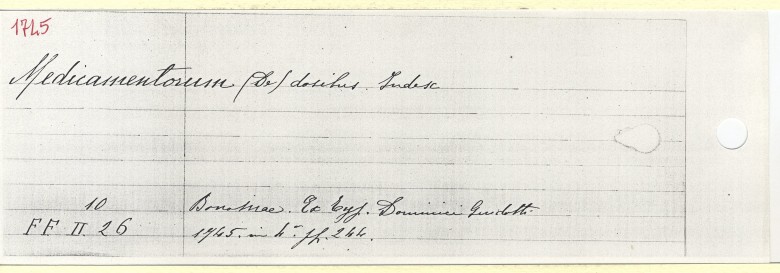 1745
Medicamentorum (De) dosibus. Index
10
FF II 26
Bononiae. Ex Typ. Dominici Guidotti
1745. in 4º. pp. 244.